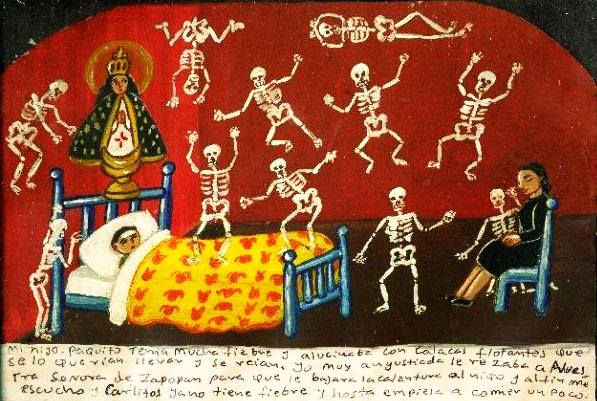 Mi hijo. Paquito tenia mucha fiebre y alucinaba con Calacas flotantes que
se lo querian llevar y se reian, yo muy angustiada le rezaba a Nues
tra Senora de Zapopan para que le bajara la calentura al niño y al fin me
escucho y Carlitos ya no tiene fiebre y hasta empieza a comer un poco.